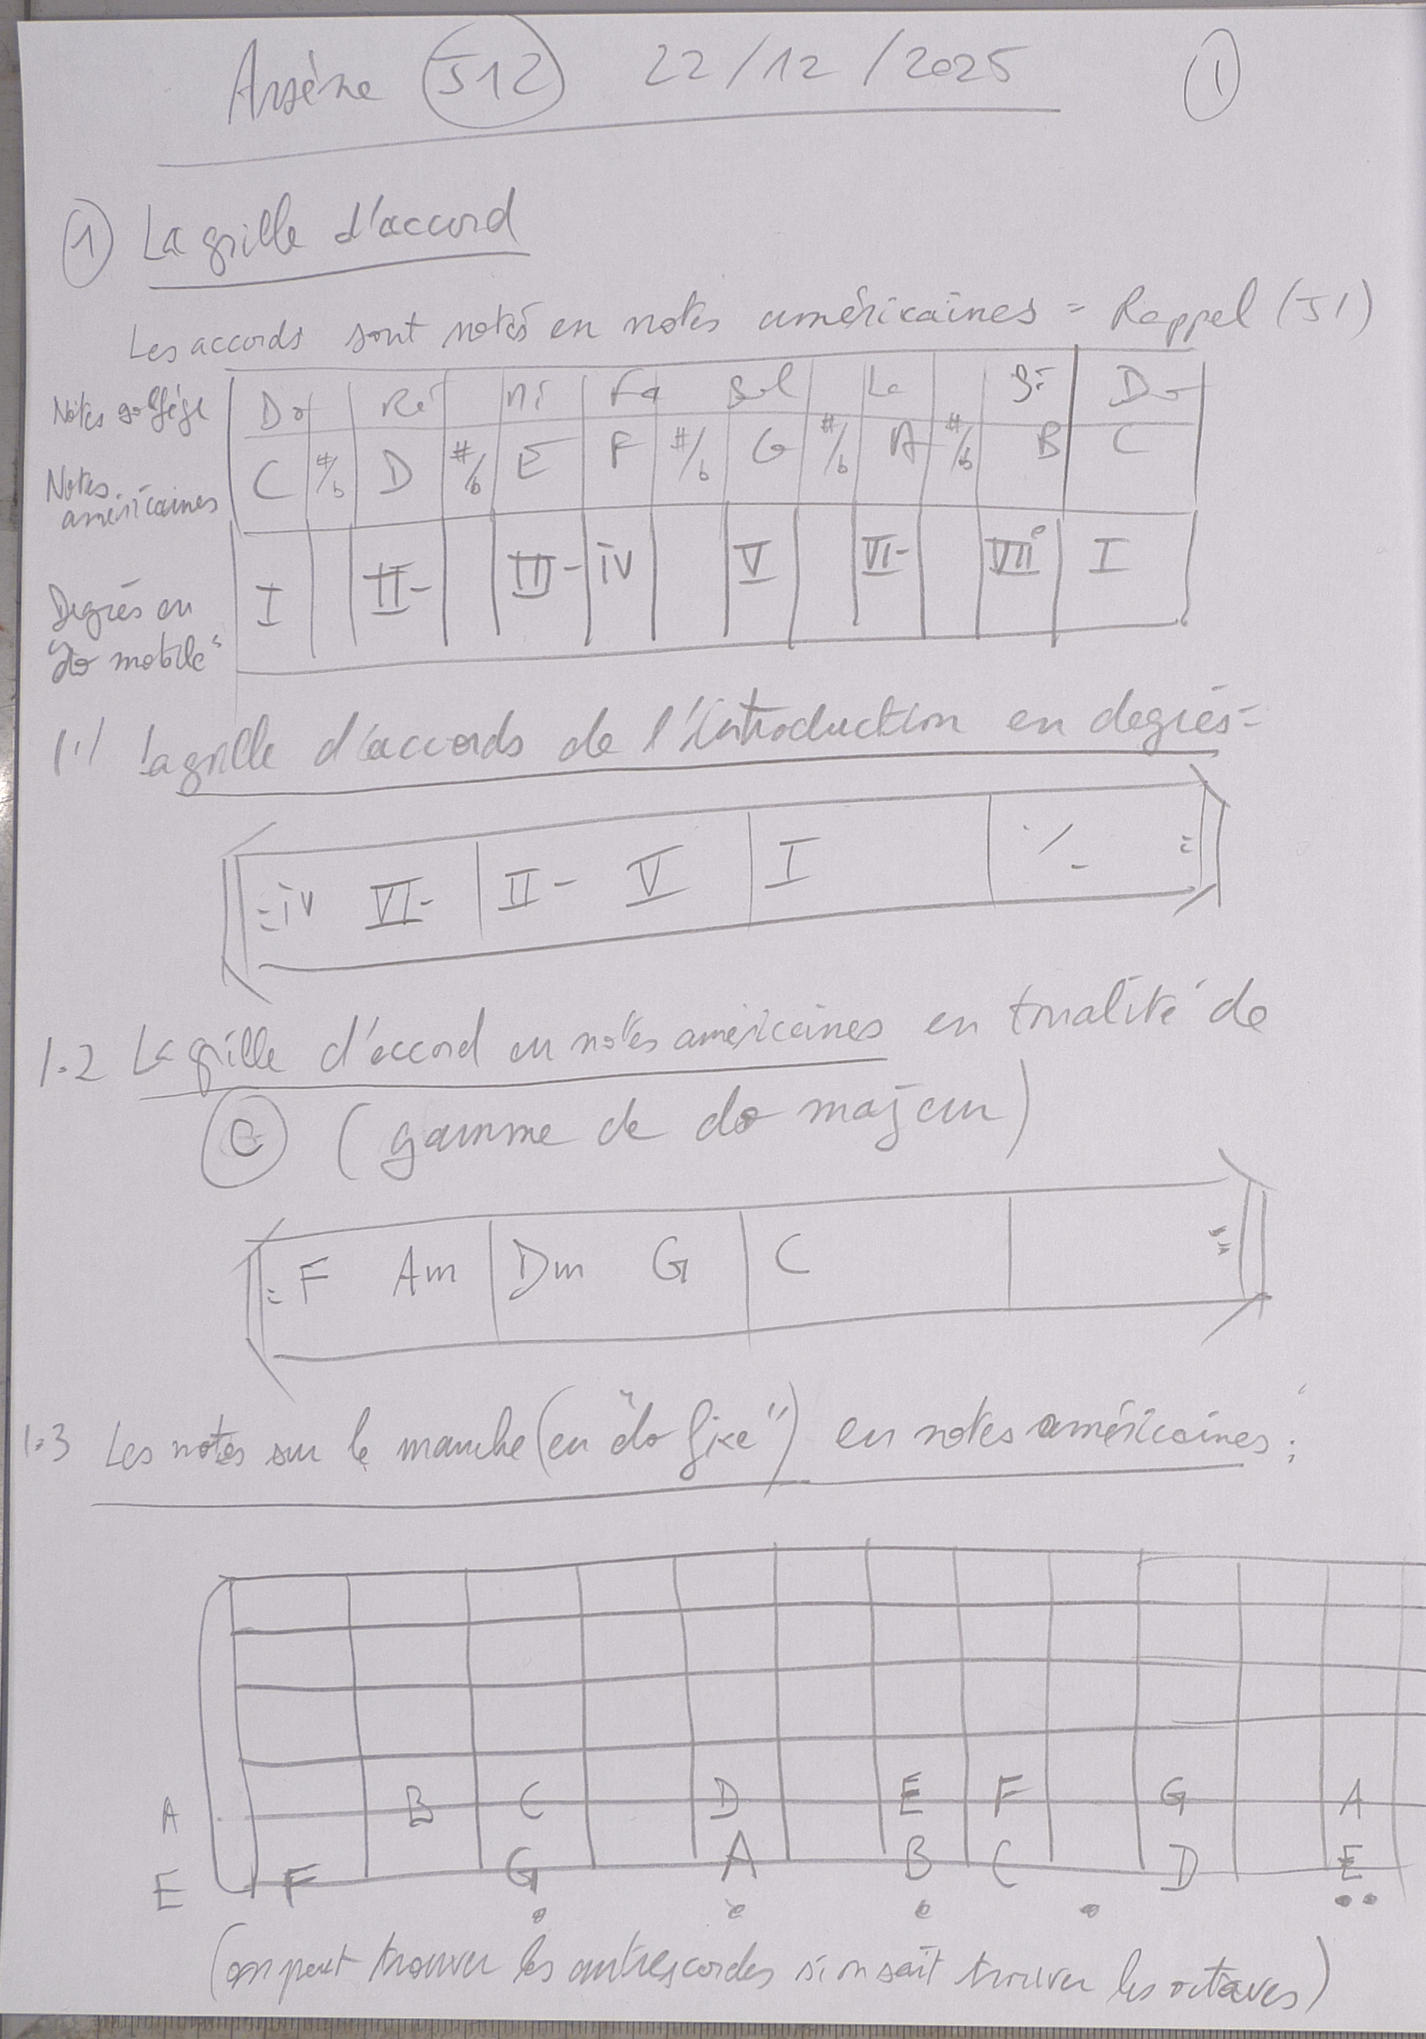 Arsène J12 22/12/2025 1
1 La grille d'accord
Les accords sont notés en notes américaines = Rappel (J1)
Notes solfège Do Ré Mi Fa Sol La Si Do
Notes américaines C #/b D #/b E F #/b G #/b A #/b B C
Degrés en "do mobile" I II- III- iv V VI- VII° I
1.1 La grille d'accords de l'introduction en degrés =
iv VI- | II- V | I | ٪
1.2 La grille d'accord en notes américaines en tonalité de
C (gamme de do majeur)
F Am | Dm G | C |
1.3 Les notes sur le manche (en "do fixe") en notes américaines :
A B C D E F G A
E F G A B C D E
(on peut trouver les autres cordes si on sait trouver les octaves)